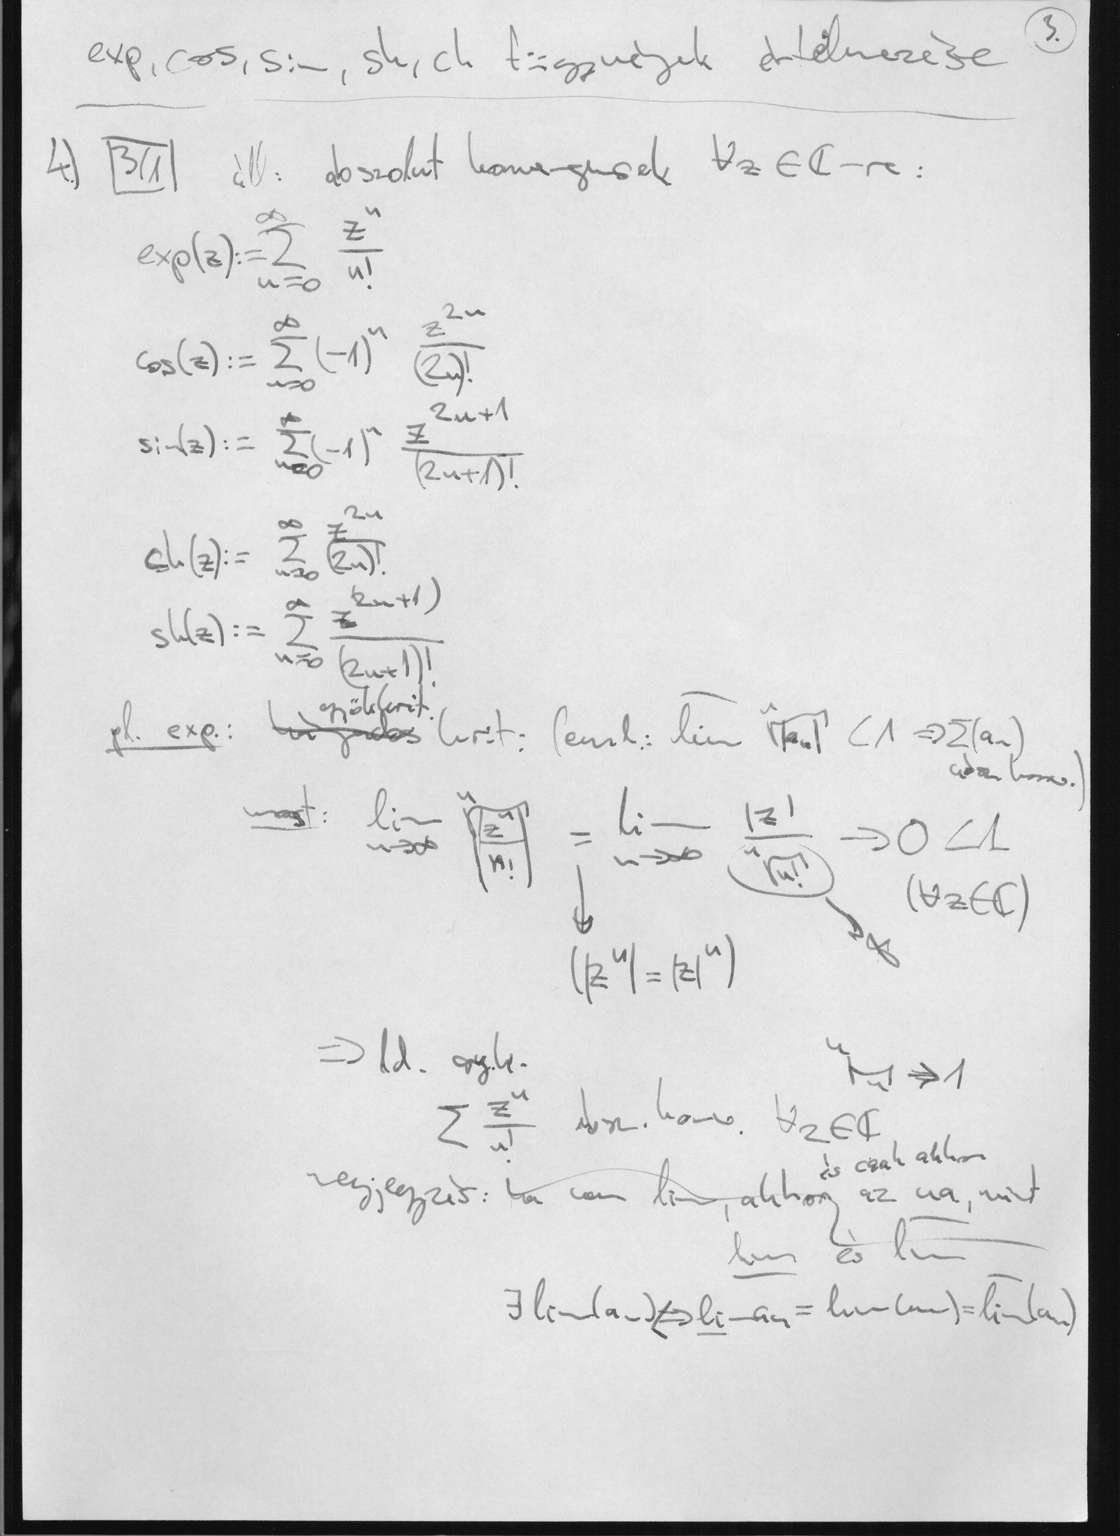 3.
exp, cos, sin, sh, ch függvények értelmezése
4.) 3/1 áll: abszolut konvergensek ∀z∈ℂ-re:
exp(z):=∑_{n=0}^{∞} z^n/n!
cos(z):=∑_{n=0}^{∞} (-1)^n z^{2n}/(2n)!
sin(z):=∑_{n=0}^{∞} (-1)^n z^{2n+1}/(2n+1)!
ch(z):=∑_{n=0}^{∞} z^{2n}/(2n)!
sh(z):=∑_{n=0}^{∞} z^{(2n+1)}/(2n+1)!
gyökkrit.
pl. exp.: krit: (eml.: \overline{lim} ⁿ√|a_n| < 1 ⇒ ∑(a_n)
absz. konv.)
most: lim_{n→∞} ⁿ√|z^n/n!| = lim_{n→∞} |z|/ⁿ√n! → 0 < 1
(∀z∈ℂ)
→∞
(|z^n| = |z|^n)
⇒ ld. gy.k. ⁿ√n → 1
∑ z^n/n! absz. konv. ∀z∈ℂ
és csak akkor
megjegyzés: ha van lim, akkor az ua, mint
\underline{lim} és \overline{lim}
∃ lim(a_n) ⇔ \underline{lim} a_n = lim(a_n) = \overline{lim}(a_n)